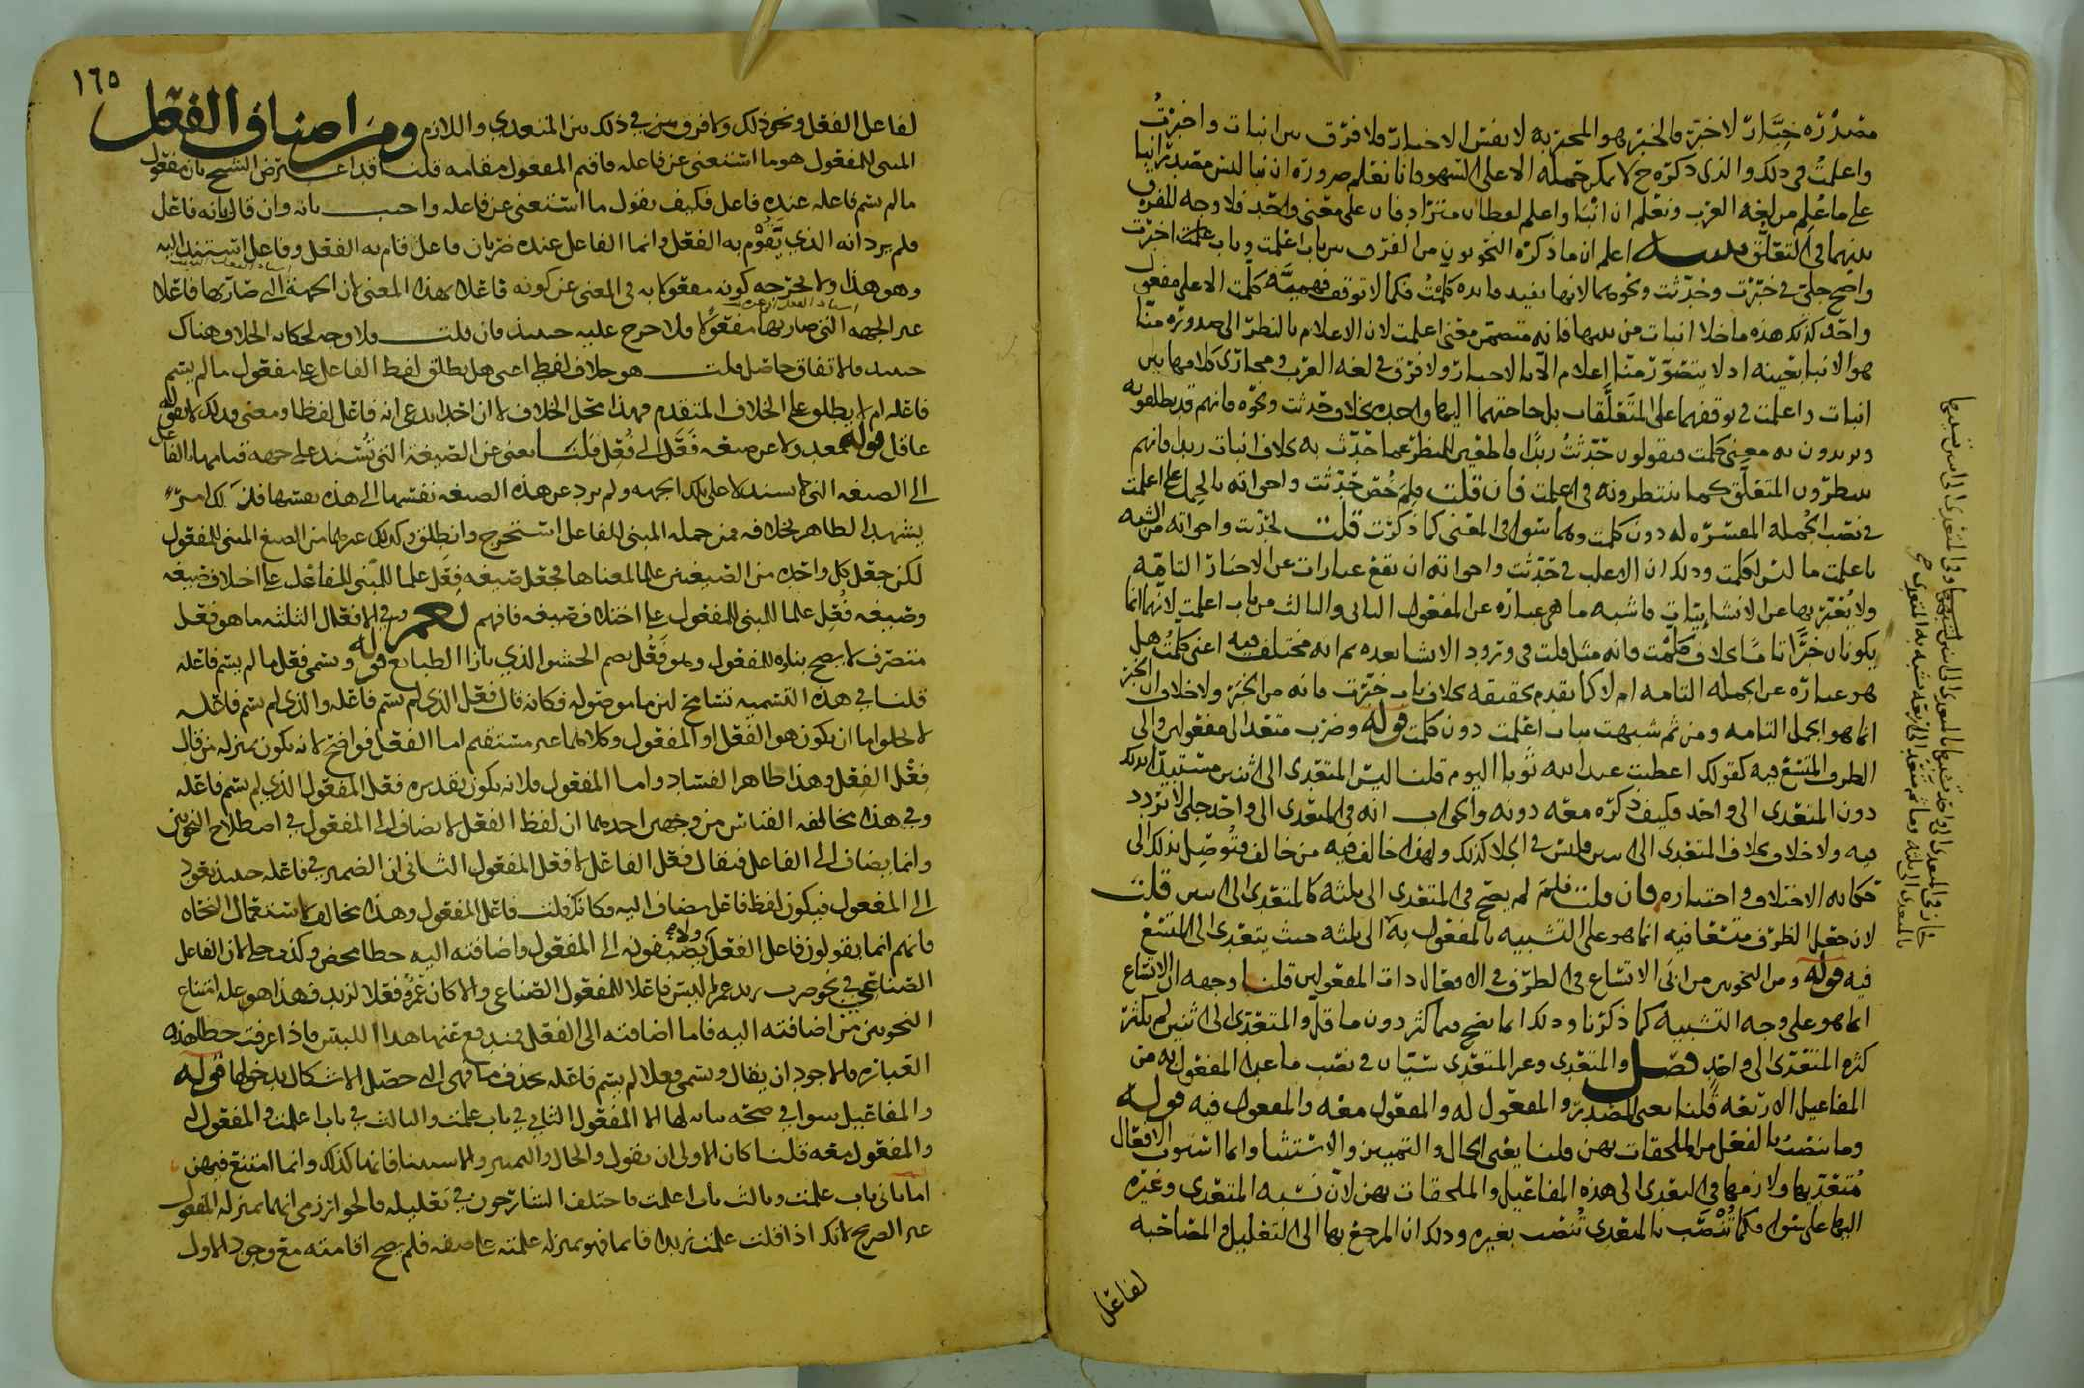 مصدره خبار لا خبر فالخبر هو المخبر به لا نفس الاخبار فلا فرق بين انبات واخبرت
واعلمت في ذلك والذي ذكره ح لا يمكن حمله الا على السهو فانا نعلم ضرورة ان نبا ليس مصدر انبا
على ما علم من لغة العرب ونعلم ان انبا واعلم لفظان مترادفان على معنى واحد فلا وجه للفرق
بينهما في التعلق اعلم ان ما ذكره النحويون من الفرق بين باب اعلمت وباب اخبرت
واضح جلي في خبرت وحدثت ونحوهما لانها بمنزلة كلمت فكما لا توقف كلمت الا على مفعول
واحد كذلك هذه ما خلا انبات من بينها فانه متضمن معنى اعلمت لان الاعلام بالنظر الى صدوره منا
هو الانبا بعينه اذ لا يتصور منا اعلام الا بالاخبار ولا فرق في لغة العرب ومجاري كلامها بين
انبات واعلمت في توقفهما على المتعلقات بل حاجتهما اليها واحدة بخلاف حدثت ونحوه فانهم قد يطلقونه
ويريدون به معنى كلمت فيقولون حدثت زيدا
ينتظرون المتعلق كما ينتظرونه في اعلمت فان قلت فلم خص حدثت واخواته بالحمل على اعلمت
في نصب الجملة المفسرة له دون كلمت وهما سوا في المعنى كما ذكرت قلت لحدثت واخواته من الشبه
باعلمت ما ليس لكلمت وذلك ان الاغلب في حدثت واخواته ان تقع عبارات عن الاخبار التامة
ولا يعبر بها عن الانشائيات فاشبه ما هي عبارة عن المفعول الثاني والثالث من باب اعلمت لانهما انما
يكونان خبرا تاما بخلاف كلمت فانه مثل قلت في ورود الانشا بعده ثم انه مختلف فيه اعني كلمت هل
هو عبارة عن الجملة التامة ام لا كما تقدم تحقيقه بخلاف باب خبرت فانه من الخبر ولا خلاف ان الخبر
انما هو الجمل التامة ومن ثم شبهت بباب اعلمت دون كلمت قوله وضرب متعد الى مفعولين والى
الظرف المتسع فيه كقولك اعطيت عبد الله ثوبا اليوم قلنا ليس المتعدى الى اثنين مستبدا بذلك
دون المتعدى الى واحد فكيف ذكره معه دونه والجواب انه في المتعدى الى واحد جلي لا تردد
فيه ولا خلاف بخلاف المتعدى الى اثنين فليس في الجلا كذلك ولهذا خالف فيه من خالف فتوصل بذلك الى
حكاية الاختلاف واختياره فان قلت فلم لم يصح في المتعدى الى ثلثة كالمتعدى الى اثنين قلت
لان جعل الظرف متسعا فيه انما هو على التشبيه بالمفعول به الى ثلثة حيث يتعدى الى المتسع
فيه قوله ومن النحويين من ابى الاتساع في الظرف في الافعال ذات المفعولين قلنا وجهه ان الاتساع
انما هو على وجه التشبيه كما ذكرنا وذلك انما يصح فيما كثر دون ما قل والمتعدى الى اثنين لم يكثر
كثرة المتعدى الى واحد فصل والمتعدى وغير المتعدى سيان في نصب ما عدا المفعول به من
المفاعيل الاربعة قلنا يعني المصدر والمفعول له والمفعول معه والمفعول فيه قوله
وما ينصب بالفعل من الملحقات بهن قلنا يعني الحال والتمييز والاستثنا وانما استوت الافعال
متعديها ولازمها في التعدى الى هذه المفاعيل والملحقات بهن لان نسبة المتعدى وغيره
اليها على سوا فكما تنصب بالمتعدى تنصب بغيره وذلك ان المرجع بها الى التعليل والمصاحبة
لفاعل
١٦٥
لفاعل الفعل ونحو ذلك ولا فرق في ذلك بين المتعدى واللازم ومن اصناف الفعل
المبنى للمفعول هو ما استغنى عن فاعله فاقيم المفعول مقامه قلنا قد اعترض الشيخ بان مفعول
ما لم يسم فاعله عنده فاعل فكيف يقول ما استغنى عن فاعله واجيب بانه وان قال بانه فاعل
فلم يرد انه الذي يقوم به الفعل وانما الفاعل عنده ضربان فاعل قام به الفعل وفاعل اسند اليه
وهو هذا ولا يخرجه كونه مفعولا به في المعنى عن كونه فاعلا بهذا المعنى لان الجهة التي صار بها فاعلا
غير الجهة التي صار بها مفعولا فلا حرج عليه حينئذ فان قلت فلا وجه لحكاية الخلاف هناك
حينئذ فالاتفاق حاصل قلت هو خلاف لفظي اعني هل يطلق لفظ الفاعل على مفعول ما لم يسم
فاعله ام لا يطلق على الخلاف المتقدم فهذا محل الخلاف لا ان احدا يدعي انه فاعل لفظا ومعنى فذلك لا يقوله
عاقل قوله معدولا عن صيغة فَعَل الى فُعِل قلنا يعني عن الصيغة التي تسند على جهة قيامها بالفاعل
الى الصيغة التي لا تسند لا على تلك الجهة ولم يرد عن هذه الصيغة نفسها الى هذه نفسها
يشهد الظاهر بخلافه فمن جملة المبنى للفاعل استخرج وانطلق وكذلك غيرهما من الصيغ المبنى للمفعول
لكن جعل كل واحدة من الصيغتين علما لمعناها فجعل صيغة فعل علما للمبنى للفاعل على اختلاف صيغه
وصيغة فُعِل علما للمبنى للمفعول على اختلاف صيغه فافهم نعم في الافعال الثلثة ما هو فعل
متصرف لا يصح بناؤه للمفعول وهو فَعُل بضم الحشو الذي بازا الطبايع قوله ويسمى فعل ما لم يسم فاعله
قلنا في هذه التسمية تسامح لان ما موصولة فكانه قال فعل الذي لم يسم فاعله والذي لم يسم فاعله
لا يخلو اما ان يكون هو الفعل او المفعول وكلاهما غير مستقيم اما الفعل فواضح لانه يكون بمنزلة من قال
فعل الفعل وهذا ظاهر الفساد واما المفعول فلانه يكون تقديره فعل المفعول الذي لم يسم فاعله
وفي هذا مخالفة القياس من وجهين احدهما ان لفظ الفعل لا يضاف الى المفعول في اصطلاح النحويين
وانما يضاف الى الفاعل فيقال فعل الفاعل لا فعل المفعول الثاني ان الضمير في فاعله حينئذ يعود
الى المفعول فيكون لفظ فاعل مضاف اليه فكانك قلت فاعل المفعول وهذا مخالف لاستعمال النحاة
فانهم انما يقولون فاعل الفعل ولا يضيفونه الى المفعول واضافته اليه خطا محض وكذب جلي لان الفاعل
الصناعي في نحو ضرب زيد عمرا ليس فاعلا للمفعول الصناعي والا كان عمرو فعلا لزيد فهذا هو علة امتناع
النحويين من اضافته اليه فاما اضافته الى الفعل فيندفع عنها هذا اللبس فاذا عرفت خطا هذه
العبارة فالاجود ان يقال ويسمى فعلا لم يسم فاعله بحذف ما فهي التي حصل الاشكال بدخولها قوله
والمفاعيل سوا في صحة بنائه لها الا المفعول الثاني في باب علمت والثالث في باب اعلمت والمفعول له
والمفعول معه قلنا كان الاولى ان يقول والحال والتمييز والاستثنا فانها كذلك وانما امتنع فيهن
اما ثاني باب علمت وثالث باب اعلمت فاختلف الشارحون في تعليله فالخوارزمي انهما بمنزلة المفعول
غير الصريح لانك اذا قلت علمت زيدا قائما فهو بمنزلة علمته على صفة فلم يصح اقامته مع وجود الاول